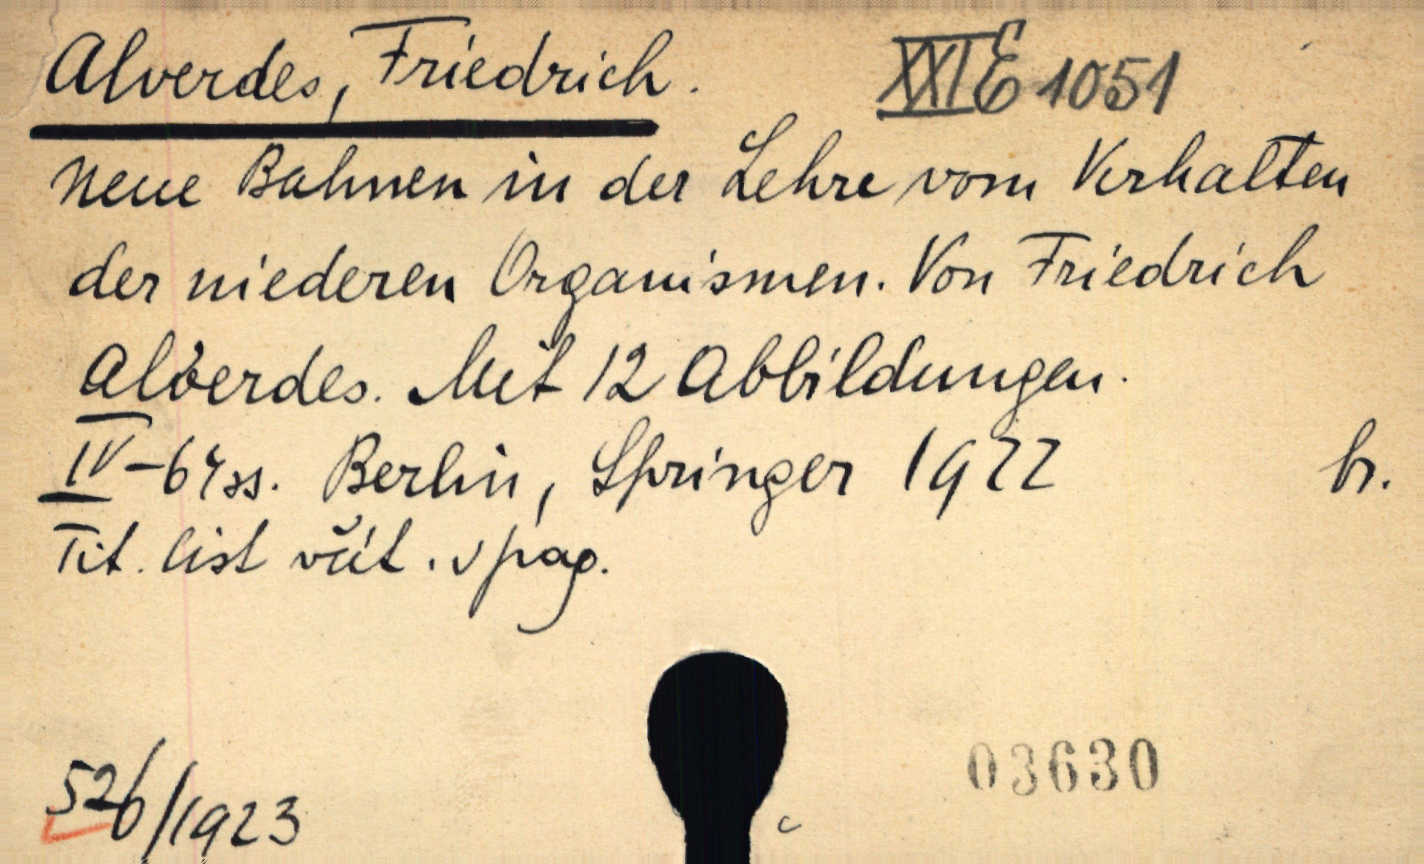 Alverdes, Friedrich. XXI E 1051
Neue Bahnen in der Lehre vom Verhalten
der niederen Organismen. Von Friedrich
Alverdes. Mit 12 Abbildungen.
IV-64 ss. Berlin, Springer 1922 br.
Tit. list včít. v pag.
526/1923
03630
c